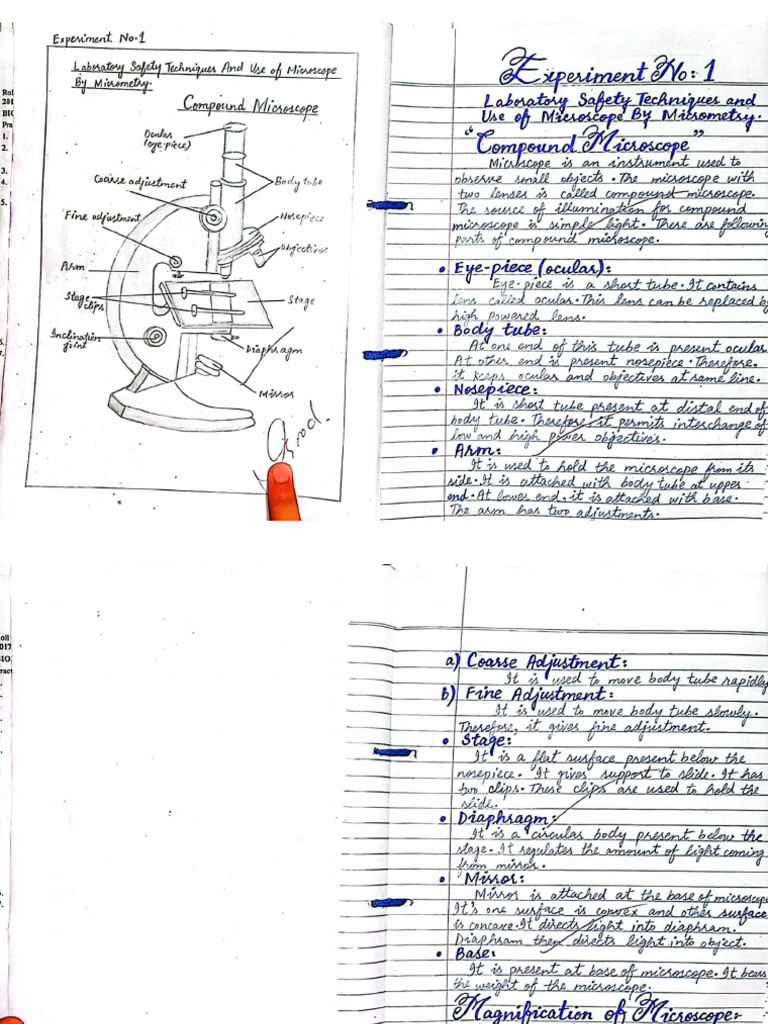 Experiment No.1
Laboratory Safety Techniques And Use of Microscope
By Micrometry.
Compound Microscope
Ocular
(eye-piece)
Coarse adjustment
Body tube
Fine adjustment
Nosepiece
objectives
Arm
Stage
clips
Stage
Inclination
joint
Diaphragm
Mirror
Good
Experiment No: 1
Laboratory Safety Techniques and
Use of Microscope By Micrometry.
"Compound Microscope"
Microscope is an instrument used to
observe small objects. The microscope with
two lenses is called compound microscope.
The source of illumination for compound
microscope is simple light. These are following
parts of compound microscope.
• Eye-piece (ocular):
Eye-piece is a short tube. It contains
lens called ocular. This lens can be replaced by
high powered lens.
• Body tube:
At one end of this tube is present ocular.
At other end is present nosepiece. Therefore,
it keeps ocular and objectives at same line.
• Nosepiece:
It is short tube present at distal end of
body tube. Therefore, it permits interchange of
low and high power objectives.
• Arm:
It is used to hold the microscope from its
side. It is attached with body tube at upper
end. At lower end, it is attached with base.
The arm has two adjustments.
a) Coarse Adjustment:
It is used to move body tube rapidly
b) Fine Adjustment:
It is used to move body tube slowly.
Therefore, it gives fine adjustment.
• Stage:
It is a flat surface present below the
nosepiece. It gives support to slide. It has
two clips. These clips are used to hold the
slide.
• Diaphragm:
It is a circular body present below the
stage. It regulates the amount of light coming
from mirror.
• Mirror:
Mirror is attached at the base of microscope
It's one surface is convex and other surface
is concave. It directs light into diaphram.
Diaphram then directs light into object.
• Base:
It is present at base of microscope. It bears
the weight of the microscope.
Magnification of Microscope: